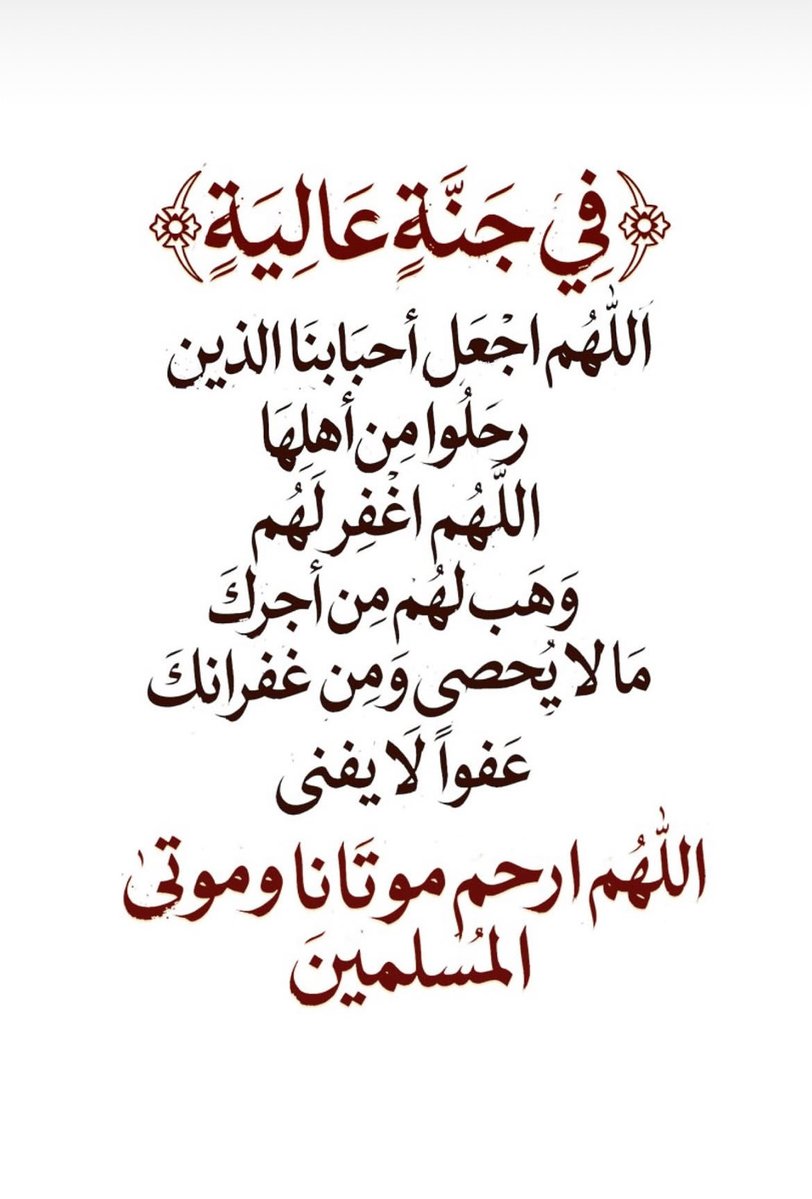 ﴿فِي جَنَّةٍ عَالِيَةٍ﴾
اَللّٰهُم اجْعَل أحبَابنَا الذين
رحَلُوا مِن أهلِهَا
اللَّهُم اغْفِر لَهُم
وَهَب لهُم مِن أجركَ
مَا لا يُحصى وَمِن غفرانكَ
عَفواً لَا يفنى
اللّٰهُم ارحم موتَانا وموتىٰ
المُسلمينَ